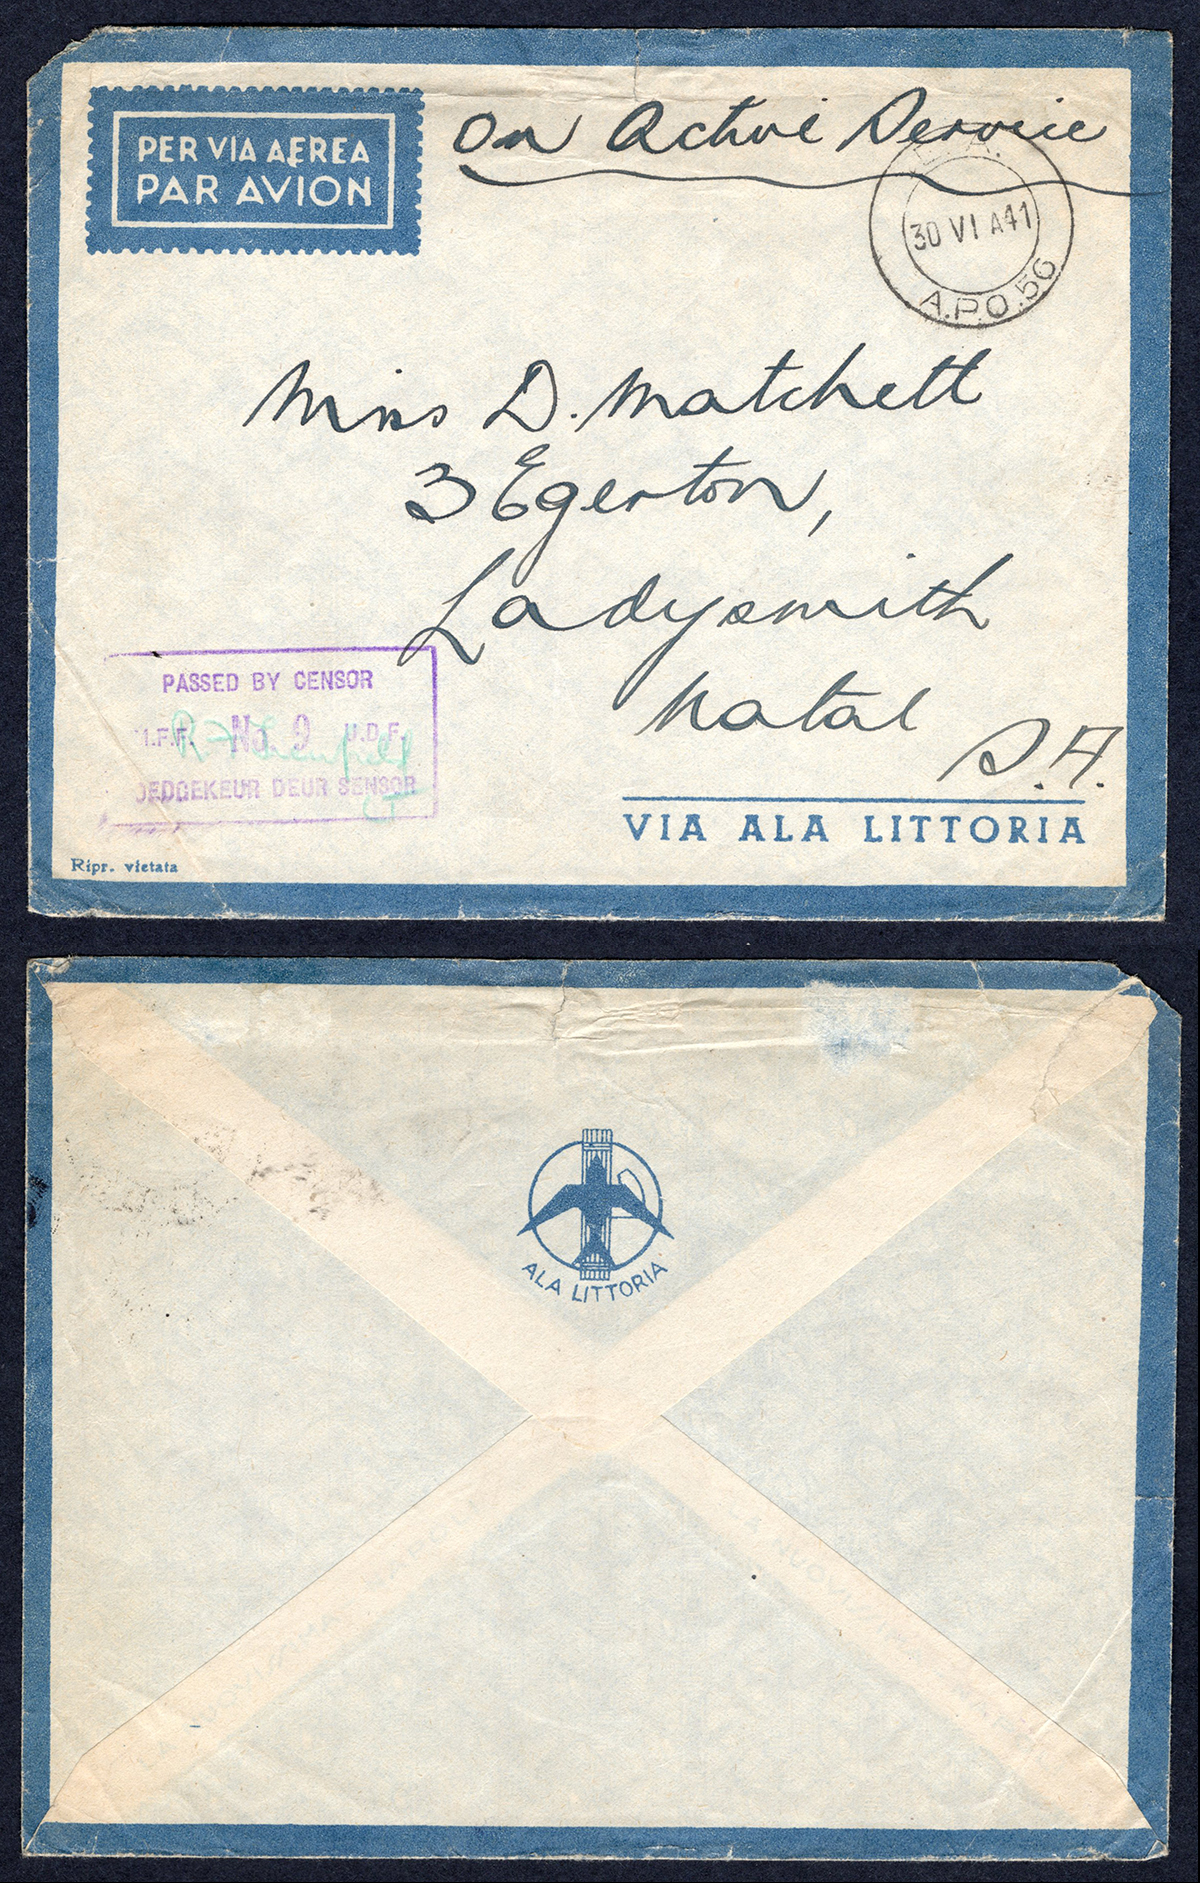 PER VIA AEREA
PAR AVION
On Active Service
30 VI A41
A.P.O. 56
Miss D. Matchett
3 Egerton,
Ladysmith
Natal
S.A.
PASSED BY CENSOR
No 9 U.D.F.
DEUR SENSOR
VIA ALA LITTORIA
Ripr. vietata
ALA LITTORIA